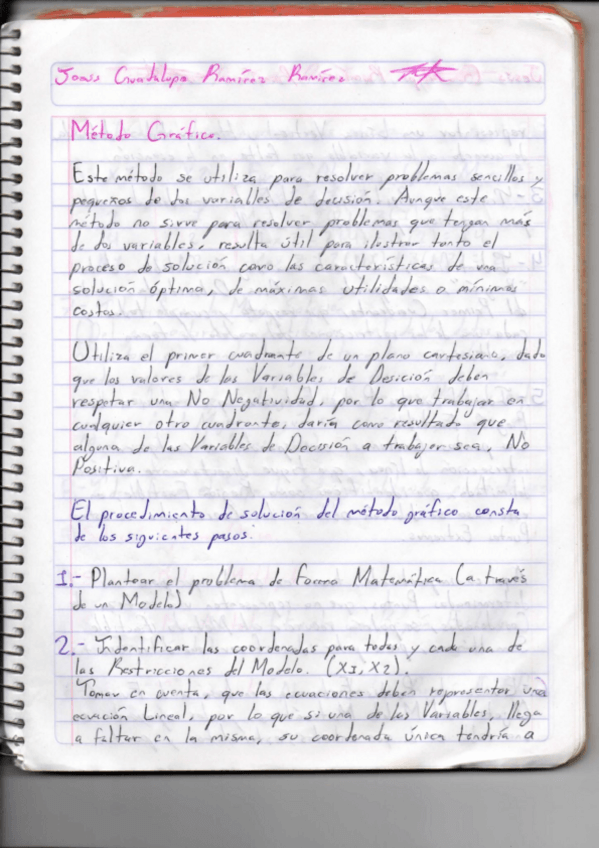 Jesús Guadalupe Ramírez Ramírez
Método Gráfico.
Este método se utiliza para resolver problemas sencillos y
pequeños de dos variables de decisión. Aunque este
método no sirve para resolver problemas que tengan más
de dos variables, resulta útil para ilustrar tanto el
proceso de solución como las características de una
solución óptima, de máximas utilidades o "mínimos"
costos.
Utiliza el primer cuadrante de un plano cartesiano, dado
que los valores de las Variables de Desición deben
respetar una No Negatividad, por lo que trabajar en
cualquier otro cuadrante, daría como resultado que
alguna de las Variables de Decisión a trabajar sea, No
Positiva.
El procedimiento de solución del método gráfico consta
de los siguientes pasos:
1.- Plantear el problema de Forma Matemática (a través
de un Modelo)
2.- Identificar las coordenadas para todas y cada una de
las Restricciones del Modelo. (X1, X2)
Tomar en cuenta, que las ecuaciones deben representar una
ecuación Lineal, por lo que si una de las Variables, llega
a faltar en la misma, su coordenada única tendría a